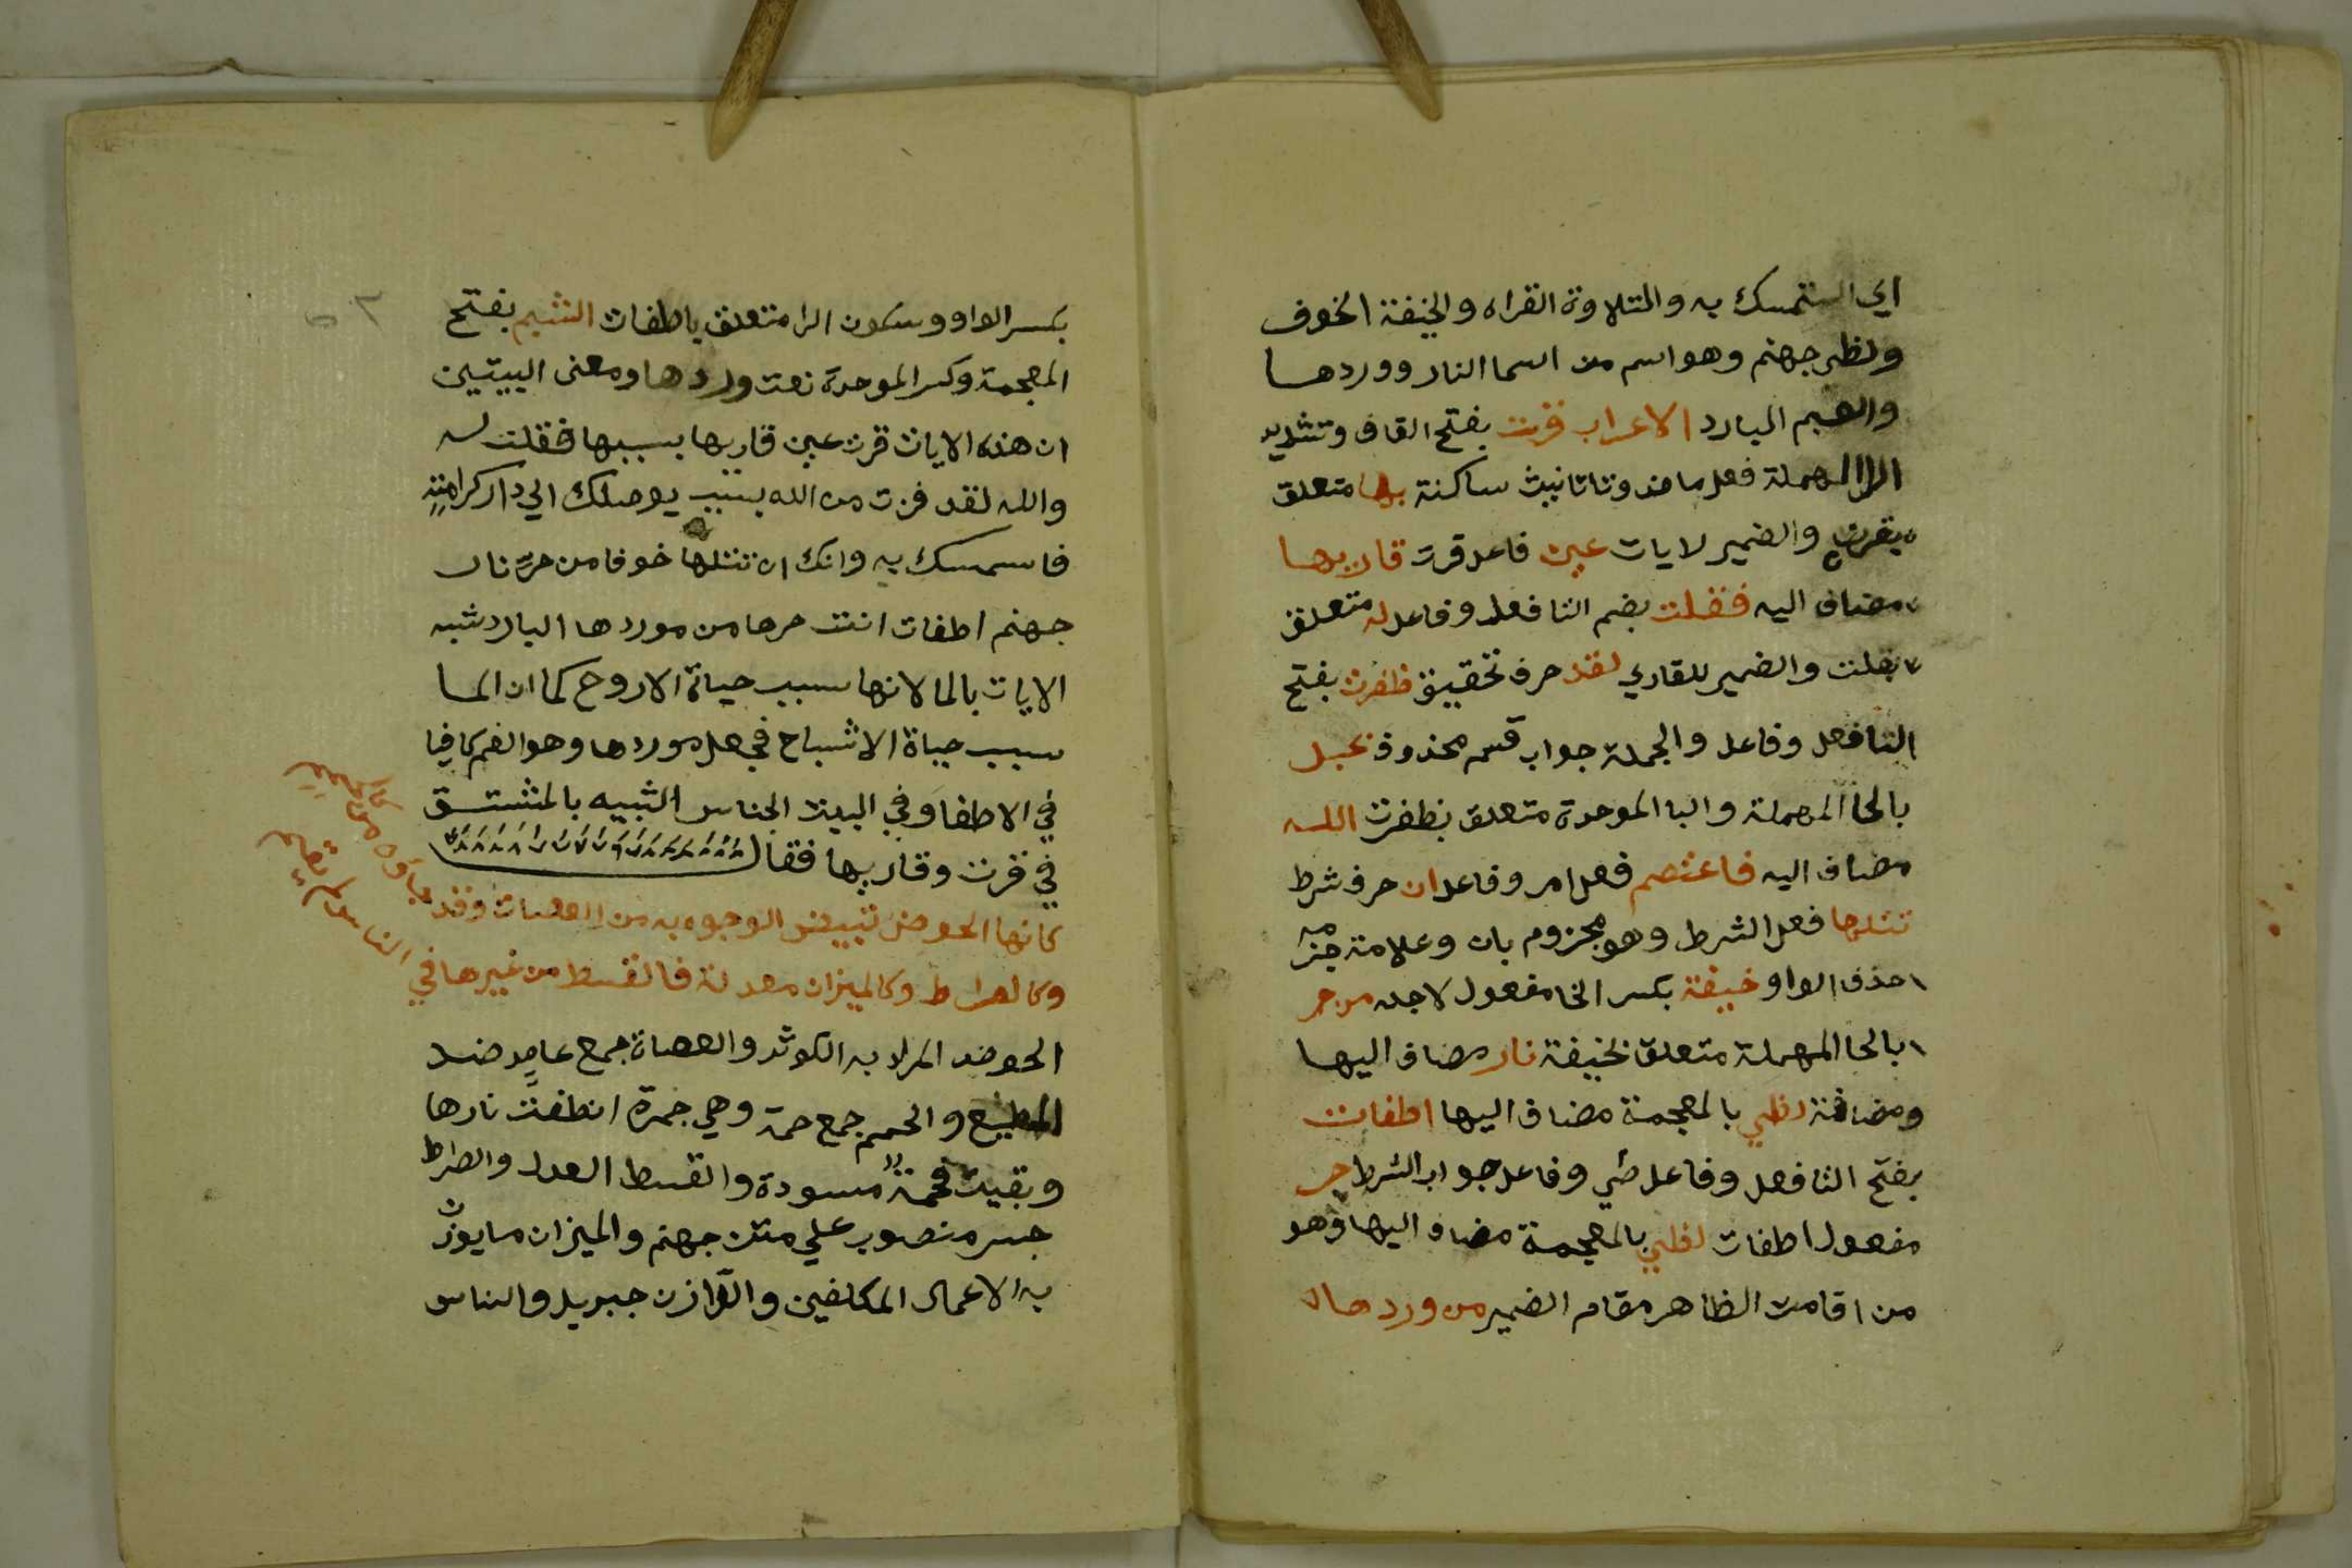 اي استمسك به والتلاوة القراه والخيفة الخوف
ولظى جهنم وهو اسم من اسما النار ووردها
والشبم البارد الاعراب قرت بفتح القاف وتشديد
الرا المهملة فعل ماض وتا تانيث ساكنة بها متعلق
بقرت والضمير لايات عين فاعل قرت قاريها
مضاف اليه فقلت بضم التا فعل وفاعل له متعلق
بقلت والضمير للقاري لقد حرف تحقيق ظفرت بفتح
التا فعل وفاعل والجملة جواب قسم محذوف بحبل
بالحا المهملة والبا الموحدة متعلق بظفرت الله
مضاف اليه فاعتصم فعل امر وفاعل ان حرف شرط
تتلها فعل الشرط وهو مجزوم بان وعلامة جزمه
حذف الواو خيفة بكسر الخا مفعول لاجله من حر
بالحا المهملة متعلق بخيفة نار مضاف اليها
ومضافة لظي بالمعجمة مضاف اليها اطفات
بفتح التا فعل وفاعل جواب الشرط حر
مفعول اطفات لظي بالمعجمة مضاف اليها وهو
من اقامت الظاهر مقام الضمير من وردها
بكسر الواو وسكون الرا متعلق باطفات الشبم بفتح
المعجمة وكسر الموحدة نعت وردها ومعنى البيتين
ان هذه الايات قرت عين قاريها بسببها فقلت له
والله لقد فزت من الله بسبب يوصلك الي دار كرامته
فاستمسك به وانك ان تتلها خوفا من حر نار
جهنم اطفات انت حرها من موردها البارد شبه
الايات بالما لانها سبب حياة الاروح كما ان الما
سبب حياة الاشباح في محل موردها وهو الفم كافيا
في الاطفا وفي البيت الجناس الشبيه بالمشتق
في قرت وقاريها فقال
كانها الحوض تبييض الوجوه به من العصات وقد جاؤه كالحمم
وكالصراط وكالميزان معدلة فالقسط من غيرها في الناس لم يقم
الحوض المراد به الكوثر والعصاة جمع عاص ضد
المطيع والحمم جمع حمة وهي جمرة انطفت نارها
وبقيت فحمة مسودة والقسط العدل والصراط
جسر منصوب علي متن جهنم والميزان ما يوزن
به الاعمال المكلفين والوازن جبريل والناس